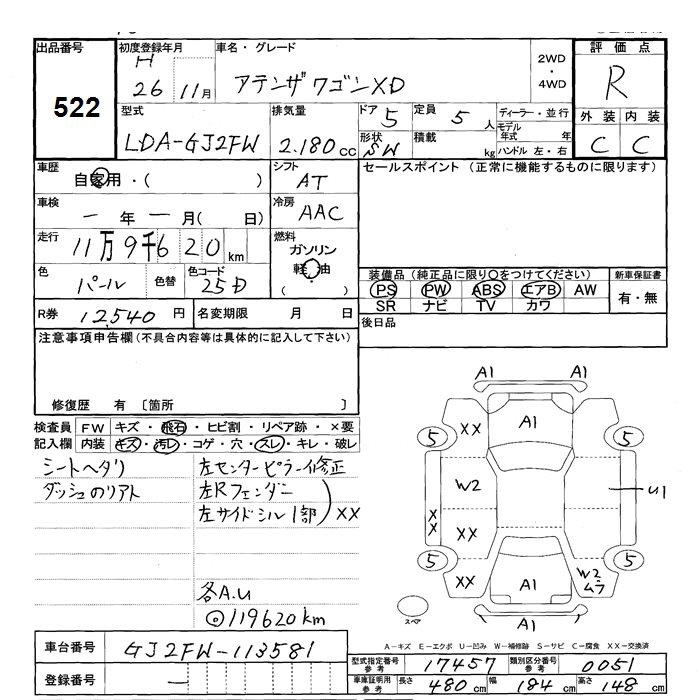 出品番号
522
初度登録年月
H
26 11月
車名・グレード
アテンザワゴンXD
2WD
・
4WD
評価点
R
型式
LDA-GJ2FW
排気量
2.180cc
ドア 5
形状 SW
定員 5人
積載 kg
ディーラー・並行
モデル年式 年
ハンドル 左・右
外装 内装
C C
車歴
自家用・( )
シフト
AT
車検
一年一月( 日)
冷房
AAC
走行
11万9千620km
燃料
ガソリン
軽油
( )
色
パール
色替
色コード
25D
R券 12,540円
名変期限 月 日
セールスポイント (正常に機能するものに限ります)
装備品 (純正品に限り○をつけてください)
PS PW ABS エアB AW
SR ナビ TV カワ
新車保証書
有・無
後日品
注意事項申告欄(不具合内容等は具体的に記入して下さい)
修復歴 有 〔箇所 〕
検査員記入欄
FW キズ・飛石・ヒビ割・リペア跡・×要
内装 キズ・汚レ・コゲ・穴・スレ・キレ・破レ
シートヘタリ
ダッシュのリアト
左センターピラー修正
左Rフェンダー
左サイドシル1部 XX
各A.U
◎119620km
A1 A1
XX A1
5 5
W2 U1
XX XX
5 5
XX A1 W2ムラ
A1
スペア
A－キズ E－エクボ U－凹み W－補修跡 S－サビ C－腐食 XX－交換済
車台番号
GJ2FW-113581
登録番号
―
型式指定番号参考 17457
類別区分番号参考 0051
車庫証明用参考 長さ 480cm 幅 184cm 高さ 148cm